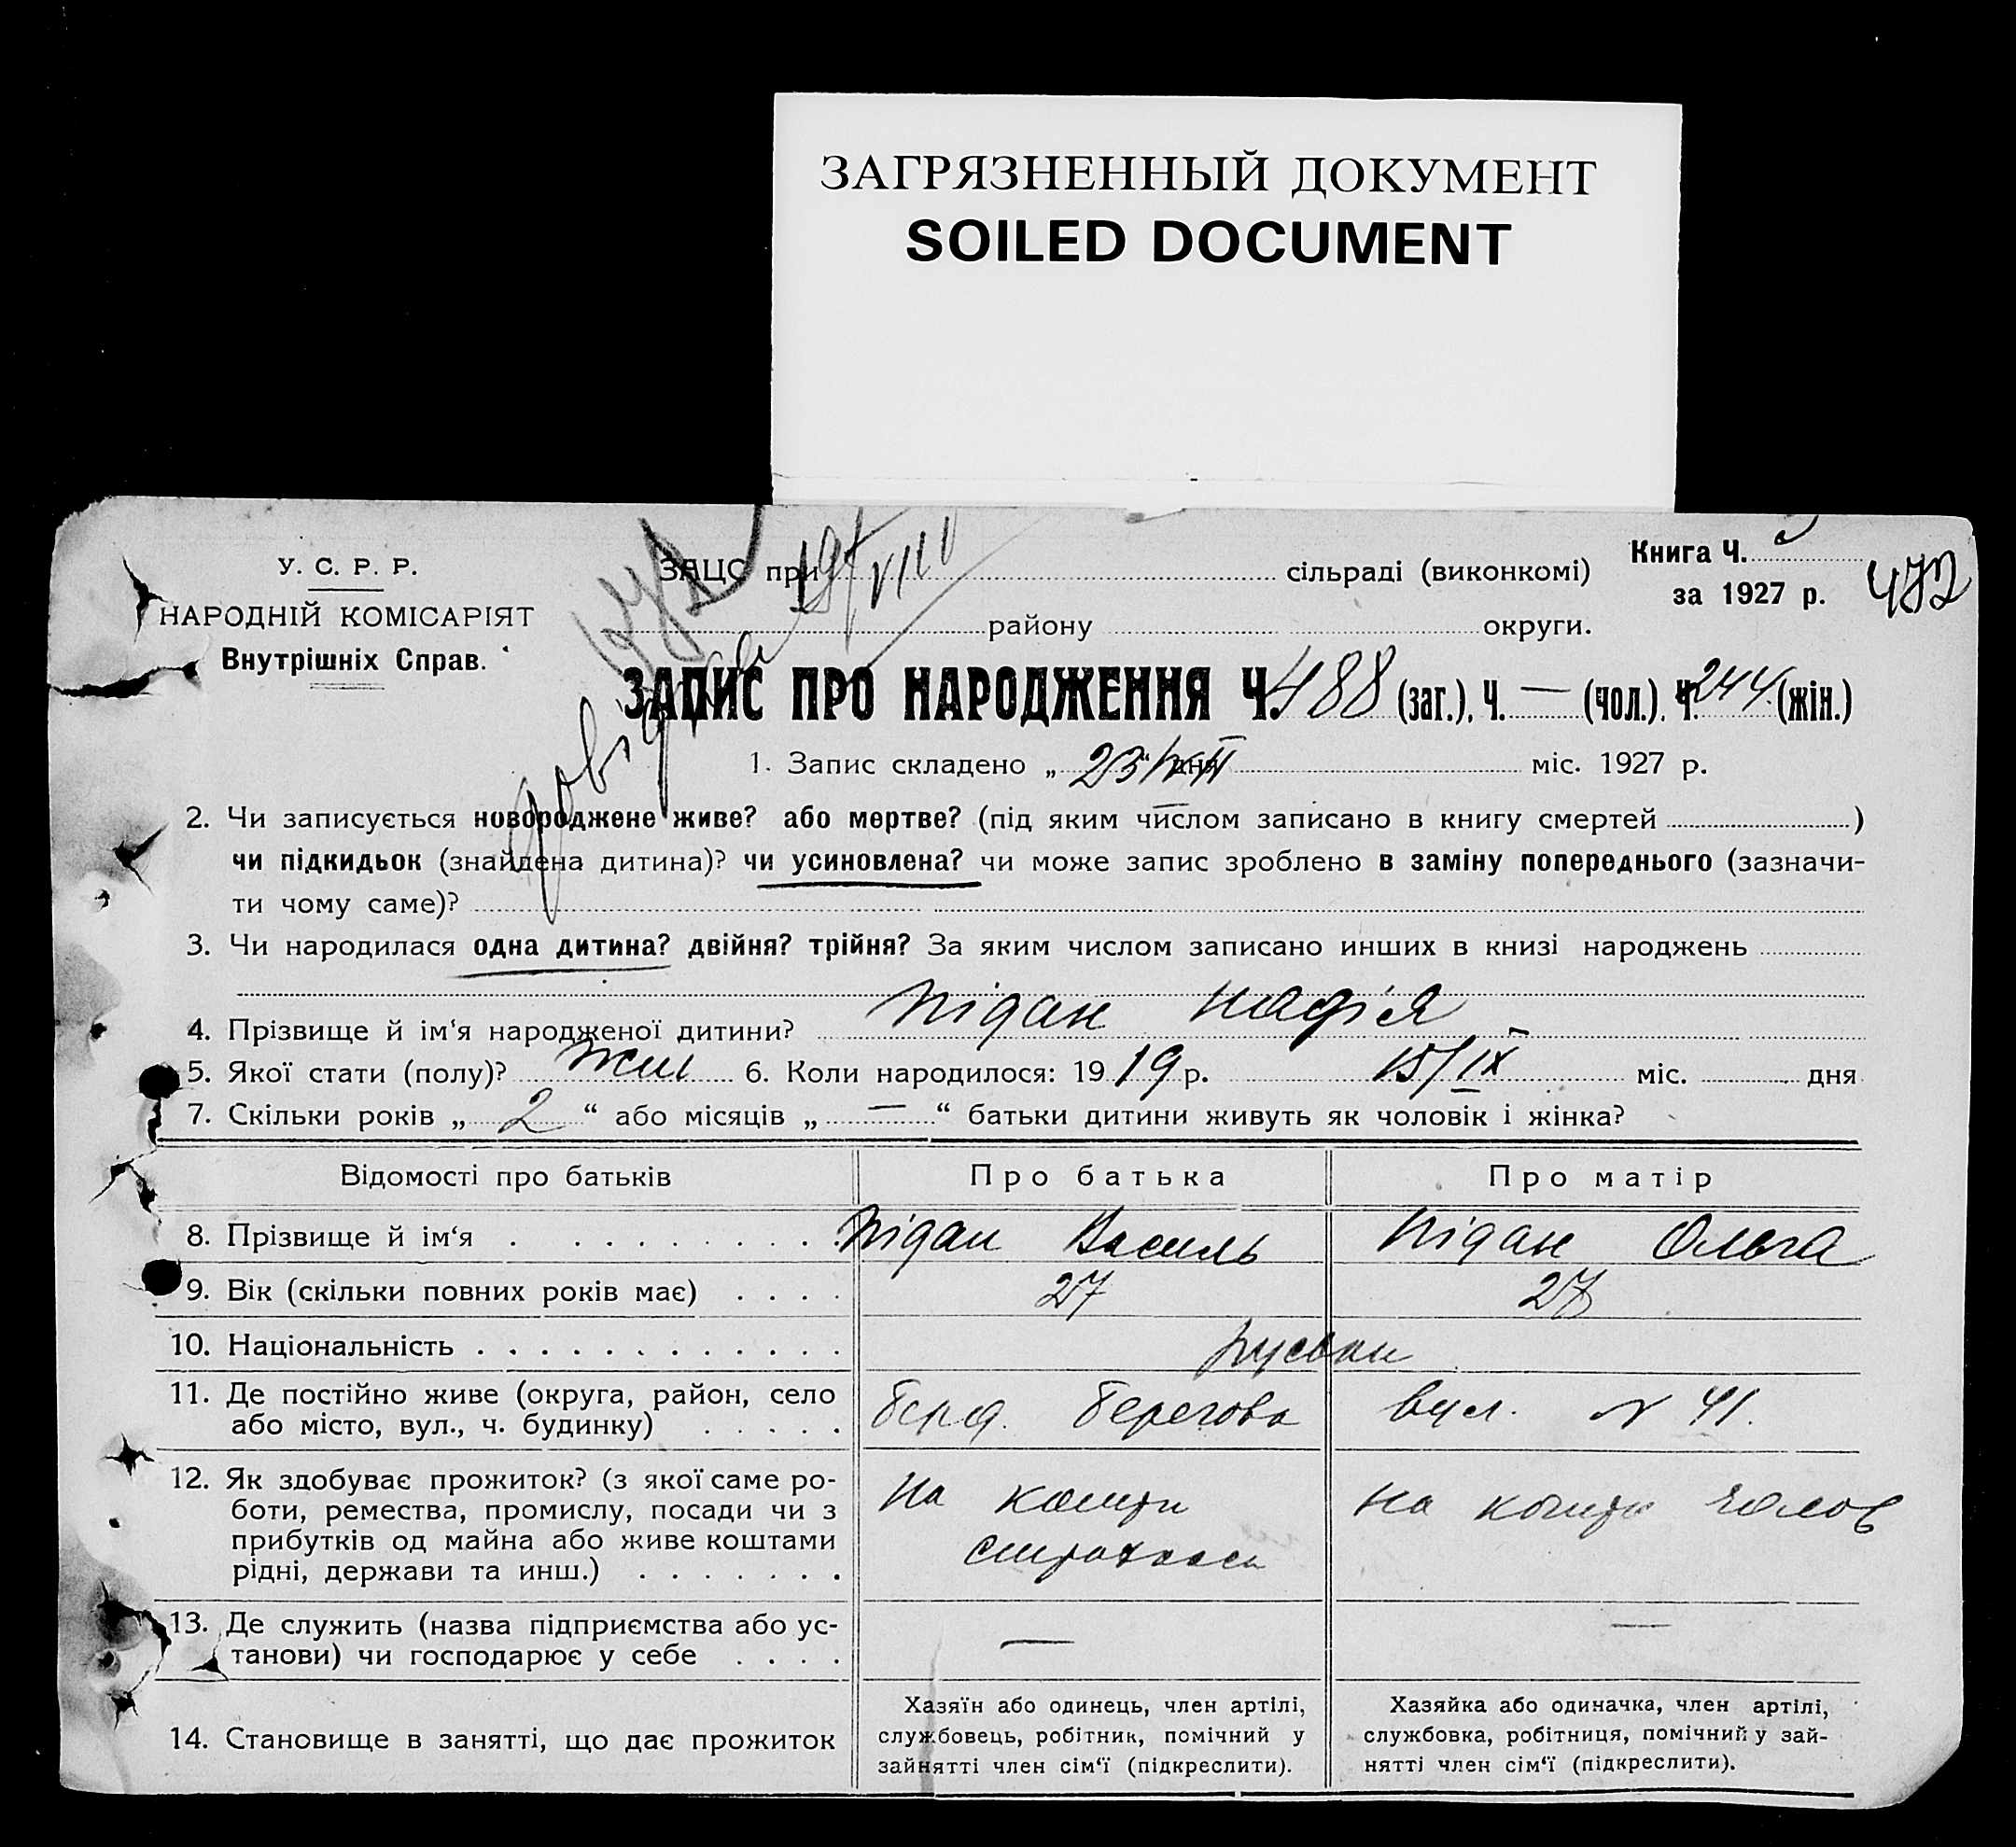 ЗАГРЯЗНЕННЫЙ ДОКУМЕНТ
SOILED DOCUMENT
У. С. Р. Р.
НАРОДНІЙ КОМІСАРІЯТ
Внутрішніх Справ.
ЗАЦС при 19/VIII сільраді (виконкомі)
району округи.
Книга Ч.
за 1927 р.
472
ЗАПИС ПРО НАРОДЖЕННЯ Ч. 488 (заг.), Ч. — (чол.), Ч. 244 (жін.)
1. Запис складено „ 23 “ дня міс. 1927 р.
2. Чи записується новороджене живе? або мертве? (під яким числом записано в книгу смертей )
чи підкидьок (знайдена дитина)? чи усиновлена? чи може запис зроблено в заміну попереднього (зазначи-
ти чому саме)?
3. Чи народилася одна дитина? двійня? трійня? За яким числом записано инших в книзі народжень
4. Прізвище й ім‘я народженої дитини? Підан
5. Якої стати (полу)? жін 6. Коли народилося: 1919 р. 15/IX міс. дня
7. Скільки років „ 2 “ або місяців „ — “ батьки дитини живуть як чоловік і жінка?
Відомості про батьків Про батька Про матір
8. Прізвище й ім‘я Підан Василь Підан Ольга
9. Вік (скільки повних років має) 27 27
10. Національність
11. Де постійно живе (округа, район, село Берд. Берегова вул. № 41.
або місто, вул., ч. будинку)
12. Як здобуває прожиток? (з якої саме ро- На кошти на кошти чолов
боти, ремества, промислу, посади чи з
прибутків од майна або живе коштами
рідні, держави та инш.)
13. Де служить (назва підприємства або ус- — —
танови) чи господарює у себе
14. Становище в занятті, що дає прожиток
Хазяїн або одинець, член артілі,
службовець, робітник, помічний у
зайнятті член сім‘ї (підкреслити).
Хазяйка або одиначка, член артілі,
службовка, робітниця, помічний у зай-
нятті член сім‘ї (підкреслити).